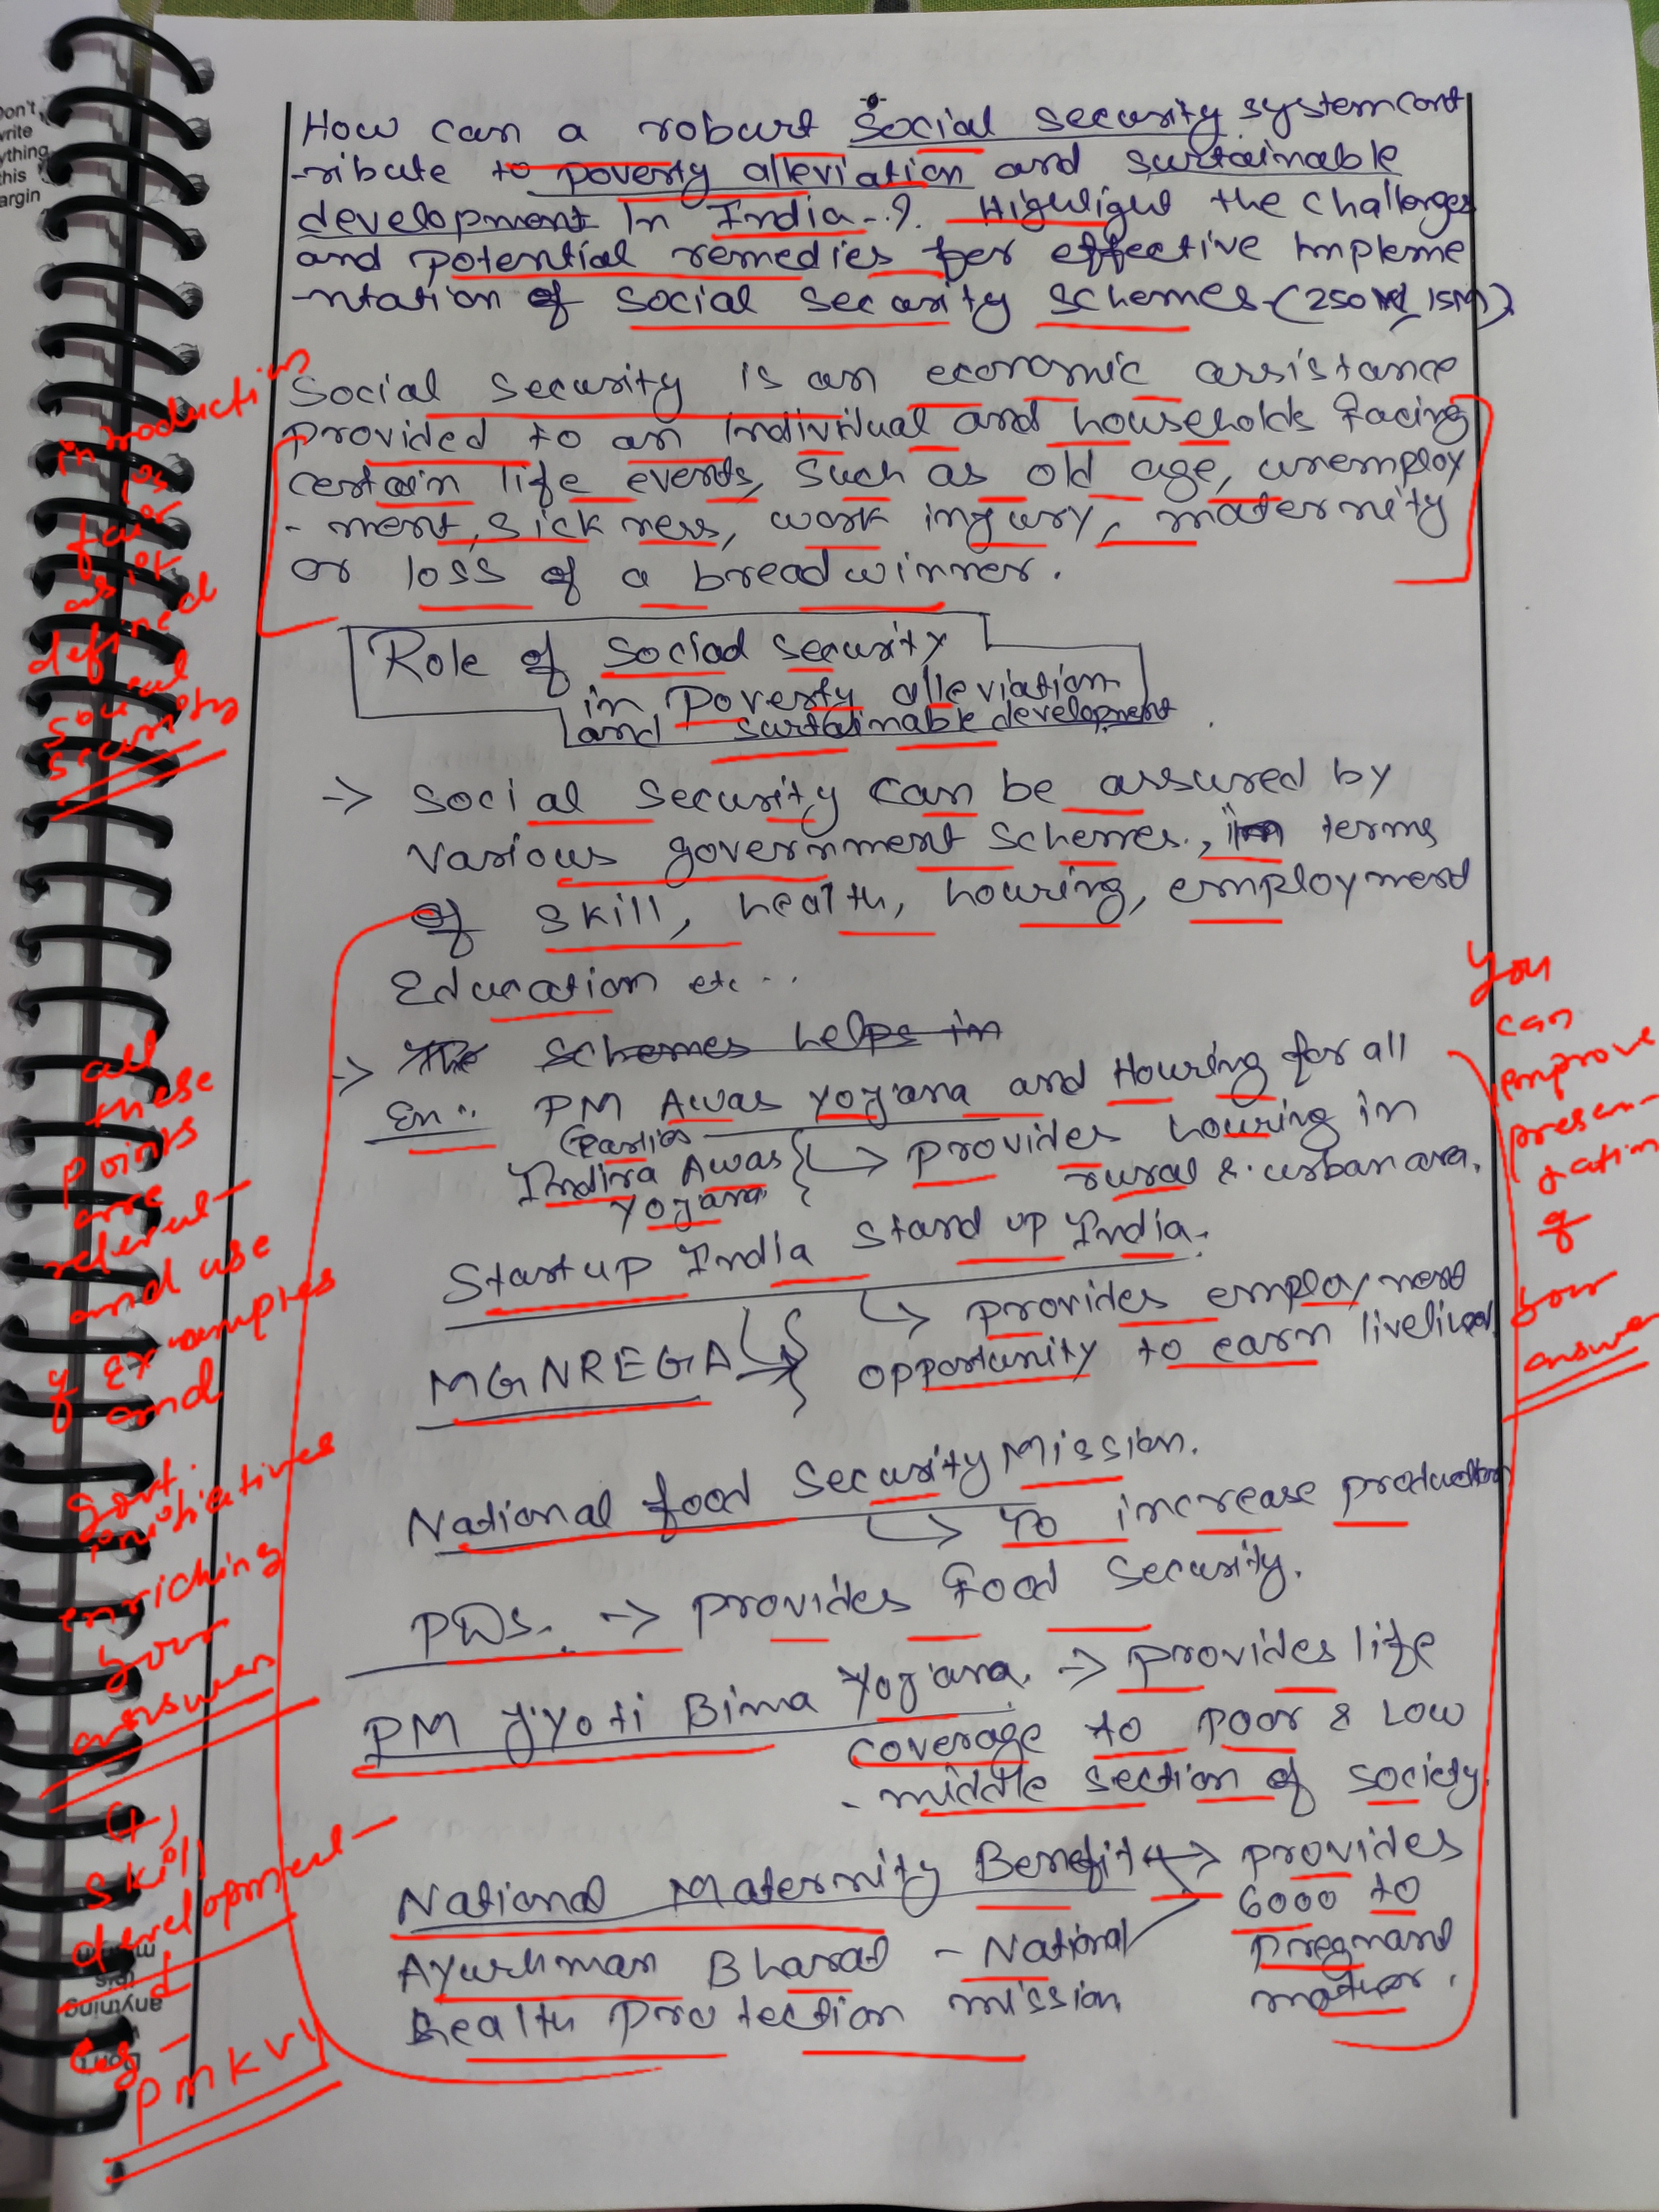 How can a robust social security system cont
-ribute to poverty alleviation and sustainable
development in India..?. Highlight the challenges
and potential remedies for effective impleme
-ntation of social security schemes (250 W, 15M)
Social security is an economic assistance
provided to an individual and households facing
certain life events, such as old age, unemploy
-ment, sickness, work injury, maternity
or loss of a breadwinner.
Role of Social security
in Poverty alleviation
and sustainable development
-> Social security can be assured by
various government schemes., in terms
of skill, health, housing, employment
Education etc...
-> The schemes helps in
Ex:. PM Awas Yojana and Housing for all
(Earlier
Indira Awas
Yojana
-> provides housing in
rural & urban area.
Startup India Stand up India.
-> provides employment
opportunity to earn livelihood
MGNREGA
National food Security Mission.
-> To increase production
PDS.. -> provides Food Security.
PM Jyoti Bima Yojana. -> provides life
coverage to poor & Low
- middle section of society.
National Maternity Benefit -> provides
6000 to
pregnant
mother.
Ayushman Bharat - National
Health Protection mission
introduction
is
fair
as it
defined
social
security
all
these
points
are
relevel-
and use
of Examples
and
govt.
initiatives
enriching
your
answer
(+)
skill
development-
eg -
PMKVY
You
can
improve
presen-
tation
of
your
answer
Don't
write
anything
this
margin
margin
this
anything
Don't